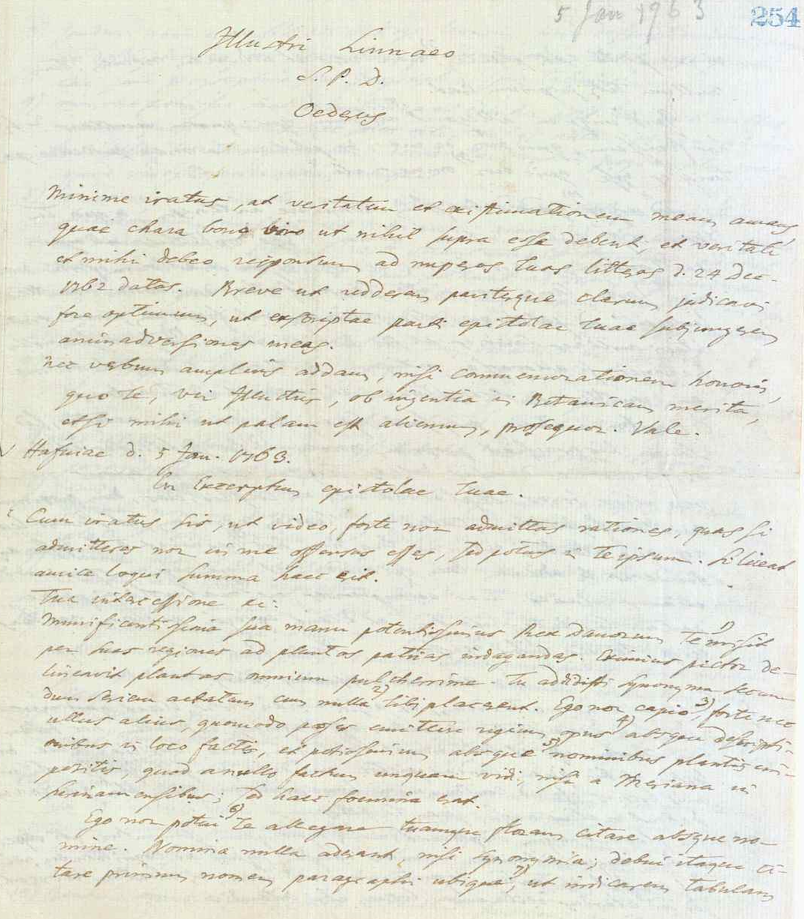 5 Jan 1763
254
Illustri Linnaeo
S. P. D.
Oederus
Minime iratus, at veritatem et existimationem meam amans,
quae chara bono viro ut nihil supra esse debent, et veritati
et mihi debeo responsum ad nuperas tuas litteras d. 24 Dec.
1762 datas. Breve ut redderem pariterque clarum judicavi
fore optimum, ut exscriptae parti epistolae tuae subjungerem
animadversiones meas.
nec verbum amplius addam, nisi commemorationem honoris,
quo te, vir Illustris, ob ingentia in Botanicam merita,
etsi mihi ut palam est alienum, prosequor. Vale.
Hafniae d. 5 Jan. 1763.
En Excerptum epistolae tuae.
Cum iratus sis, ut video, forte non admittas rationes, quas si
admitteres non in me offensus esses, sed potius in te ipsum. Si liceat
amice loqui summa haec erit.
Tua intercessione &c.
Munificentissima sua manu potentissimus Rex Danorum Te 1) misit
per suas regiones ad plantas patrias indagandas. Eximius pictor de-
lineavit plantas omnium pulcherrime. Tu addidisti Synonyma secun-
dum seriem aetatum cum nulla 2) tibi placerent. Ego non capio, 3) forte nec
ullus alius, quomodo posses emittere regium opus 4) absque descripti-
onibus in loco factis, et potissimum absque 5) nominibus plantis im-
positis, quod a nullo factum unquam vidi nisi a Meriana in
surinamensibus; sed haec foemina erat.
Ego non potui 6) Te allegare tuamque floram citare absque no-
mine. Nomina nulla aderant, nisi Synonymia; debui itaque ci-
tare primum nomen paragraphi ubique, 7) ut indicarem tabulam